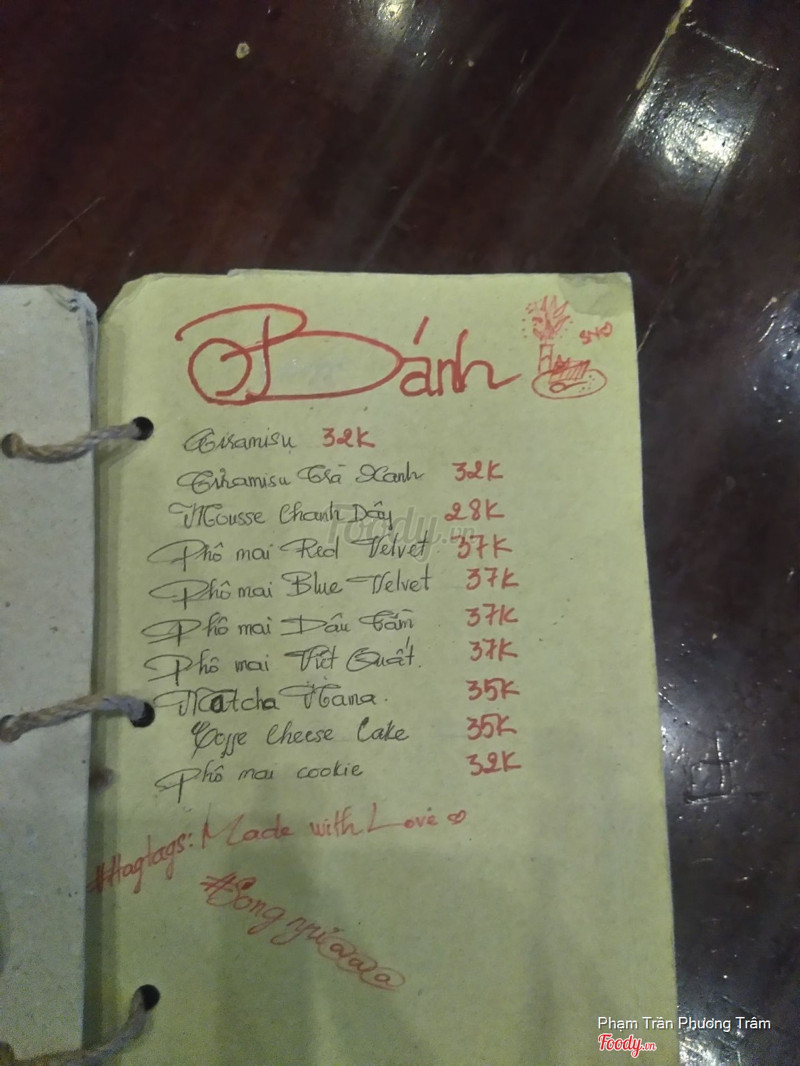 Bánh
Tiramisu 32K
Tiramisu Trà Xanh 32K
Mousse Chanh Dây 28K
Phô mai Red Velvet 37K
Phô mai Blue Velvet 37K
Phô mai Dâu Tằm 37K
Phô mai Việt Quất 37K
Matcha Hana 35K
Coffe Cheese Cake 35K
Phô mai cookie 32K
#Hagtags: Made with Love
Foody.vn
Phạm Trần Phương Trâm
Foody.vn